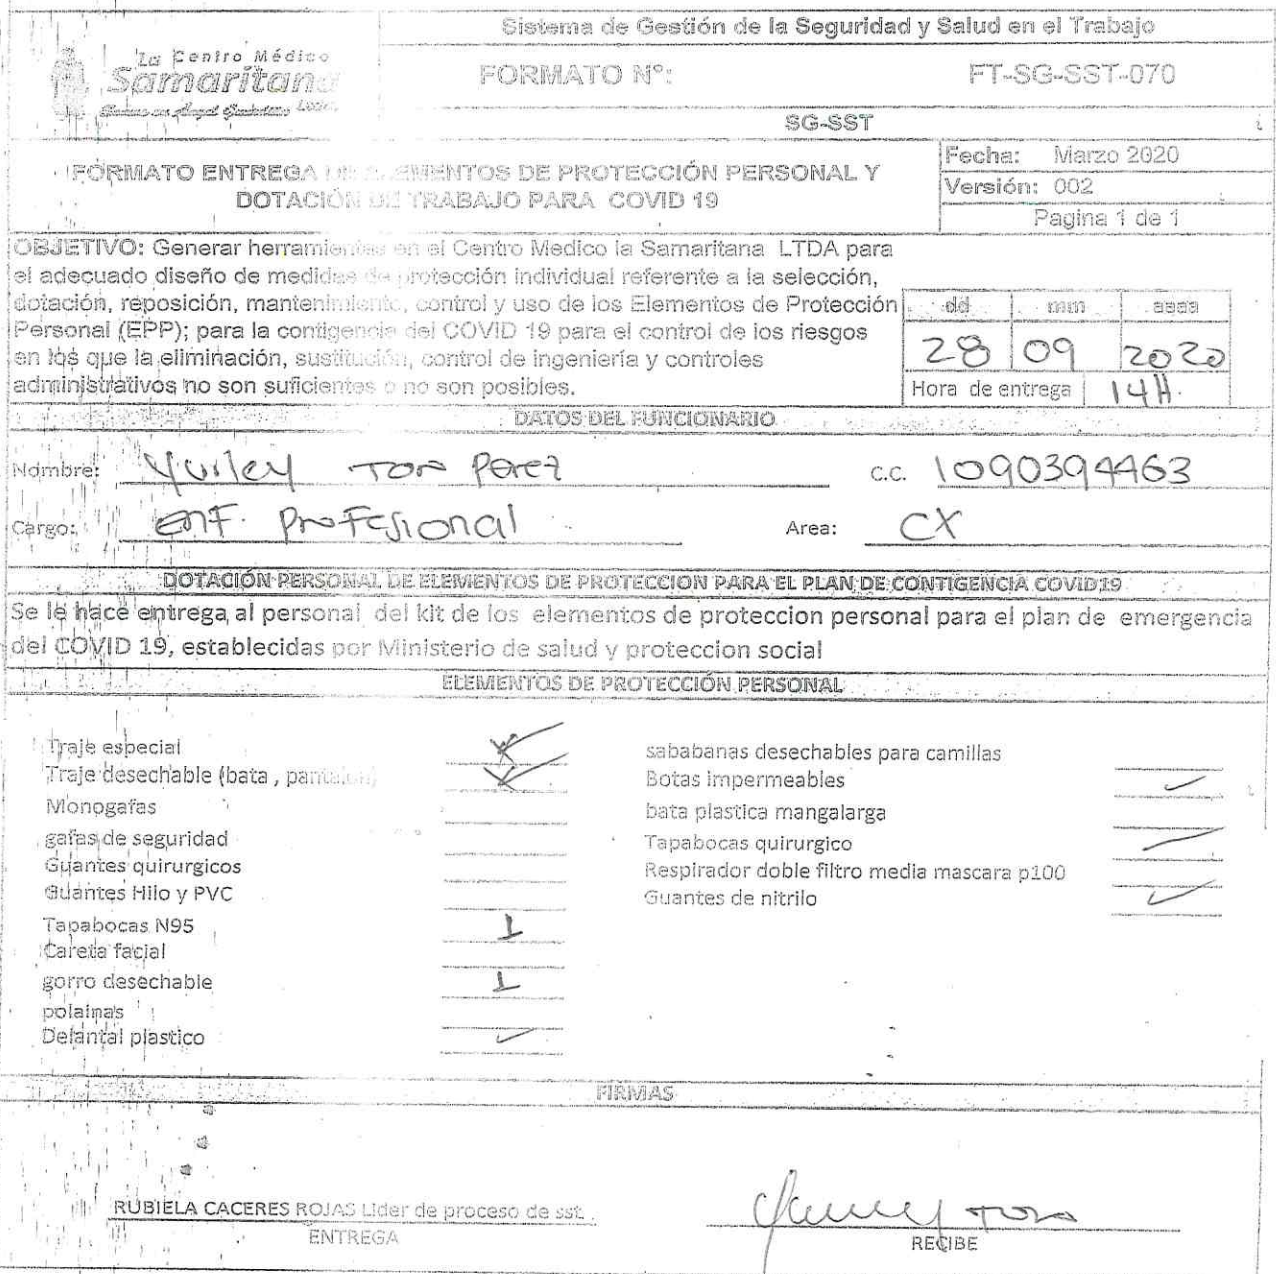 Sistema de Gestión de la Seguridad y Salud en el Trabajo
La Centro Médico
Samaritana
Ltda.
FORMATO Nº: FT-SG-SST-070
SG-SST
FORMATO ENTREGA DE ELEMENTOS DE PROTECCIÓN PERSONAL Y
DOTACIÓN DE TRABAJO PARA COVID 19
Fecha: Marzo 2020
Versión: 002
Pagina 1 de 1
OBJETIVO: Generar herramientas en el Centro Medico la Samaritana LTDA para
el adecuado diseño de medidas de protección individual referente a la selección,
dotación, reposición, mantenimiento, control y uso de los Elementos de Protección
Personal (EPP); para la contigencia del COVID 19 para el control de los riesgos
en los que la eliminación, sustitución, control de ingeniería y controles
administrativos no son suficientes o no son posibles.
dd mm aaaa
28 09 2020
Hora de entrega 14H.
DATOS DEL FUNCIONARIO
Nombre: Yurley Perez C.C. 1090394463
Cargo: enf. Profesional Area: CX
DOTACIÓN PERSONAL DE ELEMENTOS DE PROTECCION PARA EL PLAN DE CONTIGENCIA COVID19
Se le hace entrega al personal del kit de los elementos de proteccion personal para el plan de emergencia
del COVID 19, establecidas por Ministerio de salud y proteccion social
ELEMENTOS DE PROTECCIÓN PERSONAL
Traje especial
Traje desechable (bata , pantalon)
Monogafas
gafas de seguridad
Guantes quirurgicos
Guantes Hilo y PVC
Tapabocas N95 1
Careta facial
gorro desechable 1
polainas
Delantal plastico
sababanas desechables para camillas
Botas impermeables
bata plastica mangalarga
Tapabocas quirurgico
Respirador doble filtro media mascara p100
Guantes de nitrilo
FIRMAS
RUBIELA CACERES ROJAS Lider de proceso de sst.
ENTREGA
RECIBE